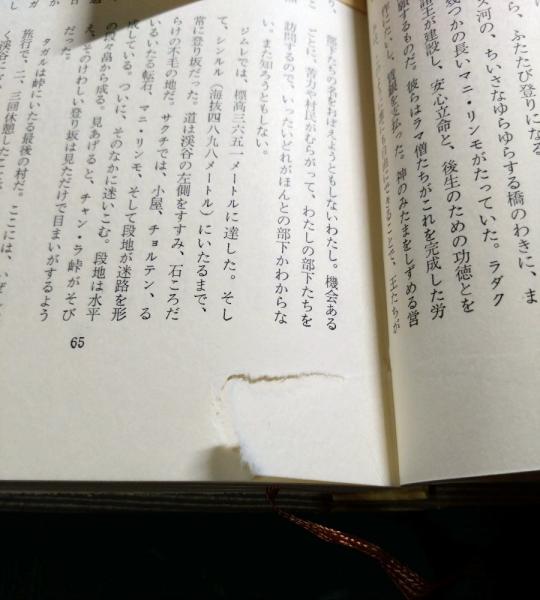 ら、ふたたび登りになる
ヌ河の、ちいさなゆらゆらする橋のわきに、ま
幾つかの長いマニ・リンモがたっていた。ラダク
諸王が建設し、安心立命と、後生のための功徳とを
願するものだ。彼らはラマ僧たちがこれを完成した労
作にたいし、賃銀を支払った。神のみたまをしずめる営
たちの名をおぼえようともしないわたし。機会ある
ごとに、苦力や村民がむらがって、わたしの部下たちを
訪問するので、いったいどれがほんとの部下かわからな
い。また知ろうともしない。
ジムレでは、標高三六五一メートルに達した。そし
て、シンルル（海抜四八九八メートル）にいたるまで、
常に登り坂だった。道は渓谷の左側をすすみ、石ころだ
らけの不毛の地だ。サクチでは、小屋、チョルテン、る
いるいたる転石、マニ・リンモ、そして段地が迷路を形
成している。ついに、そのなかに迷いこむ。段地は水平
の段々畠から成る。見あげると、チャン・ラ峠がそび
え、そのけわしい登り坂は見ただけで目まいがするよう
だった。
タガルは峠にいたる最後の村だ。ここには、
旅行で、二、三回休憩したことが
く渓谷
65